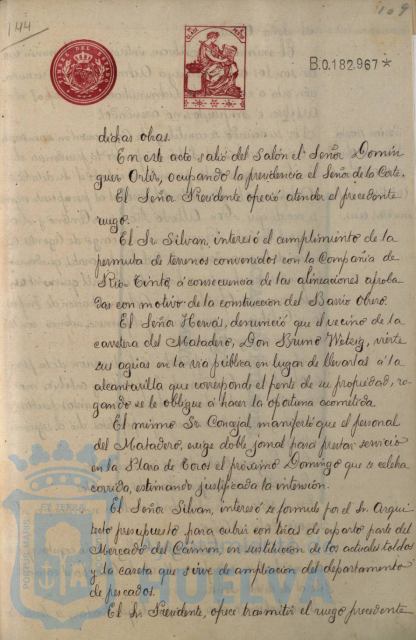 144
109
B.0.182.967*
dichas obras.
En este acto salió del Salón el Señor Domin
guez Ortiz, ocupando la presidencia el Señor de la Corte.
El Señor Presidente ofreció atender el precedente
ruego.
El Sr Silvan, interesó el cumplimiento de la
permuta de terrenos convenidos con la Compañia de
Rio Tinto á consecuencia de las alineaciones aproba
das con motivo de la construccion del Barrio Obrero.
El Señor Hervás, denunció que el vecino de la
carretera del Matadero, Don Bruno Wetzig, vierte
sus aguas en la via pública en lugar de llevarlas á la
alcantarilla que corresponde al frente de su propiedad, ro-
gando se le obligue á hacer la oportuna acometida.
El mismo Sr Concejal manifestó que el personal
del Matadero, exige doble jornal para prestar servicio
en la Plaza de Toros el próximo Domingo que se celebra
corrida, estimando justificada la intensión.
El Señor Silvan, interesó se formule por el Sr. Arqui
tecto presupuesto para cubrir con tejas de esparto parte del
Mercado del Carmen, en sustitución de los actuales toldos
y la caseta que sirve de ampliacion del departamento
de pescados.
El Sr Presidente, ofrece trasmitir el ruego precedente
HUELVA